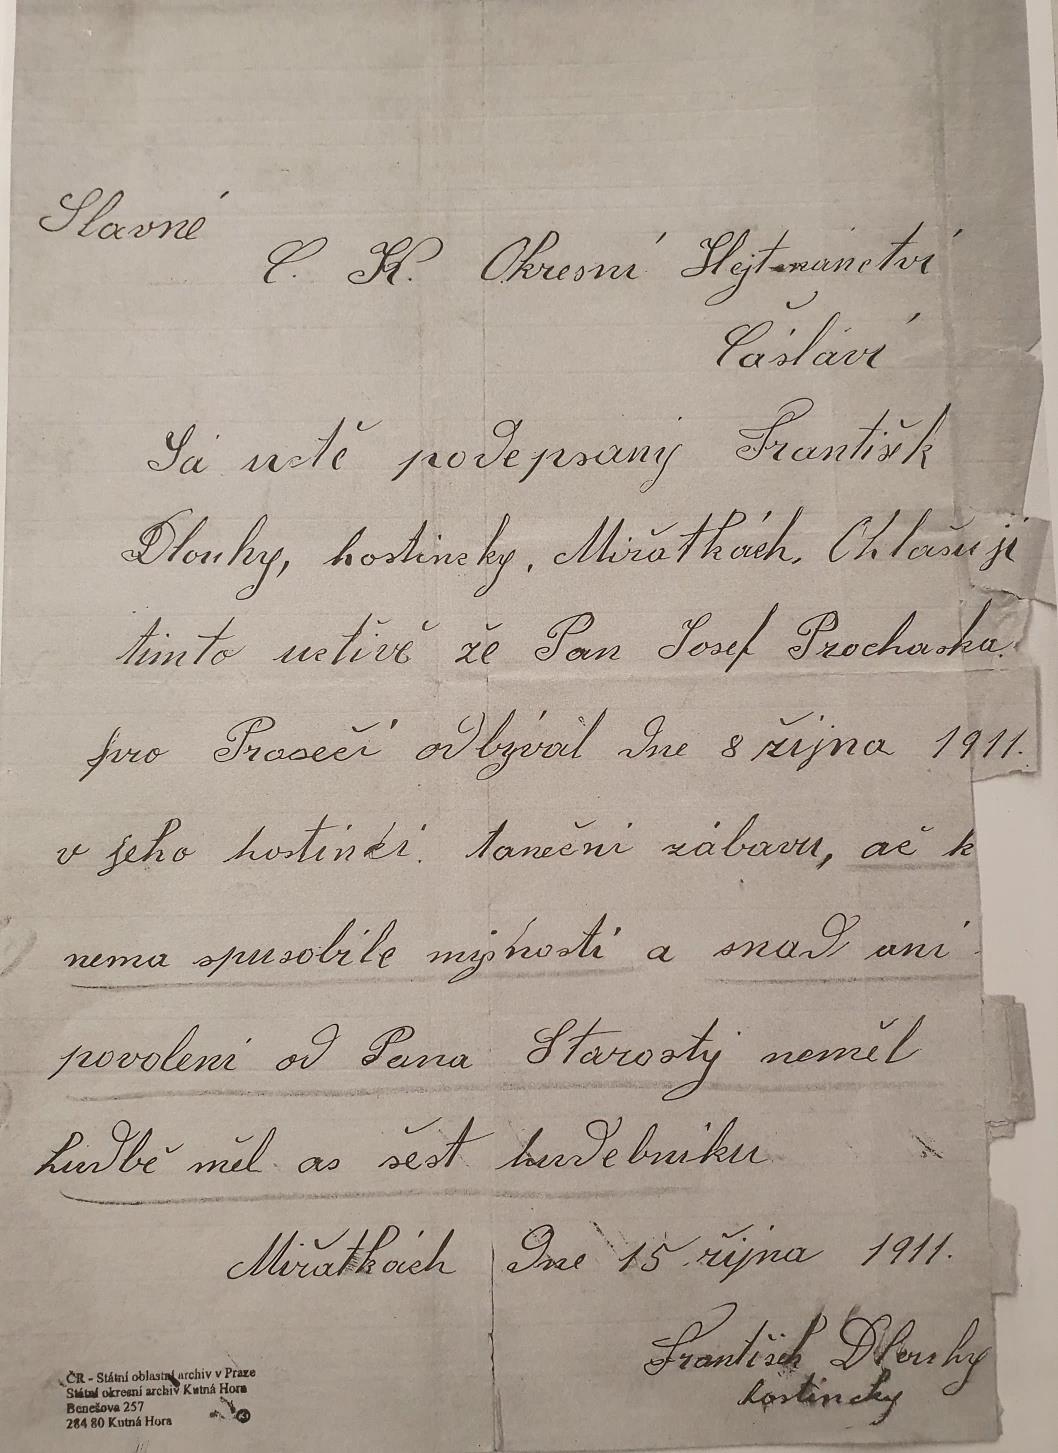 Slavné
C. K. Okresní Hejtmánctví
Čásláví
Já uctě podepsaný František
Dlouhy, hostincky, Miřatkách. Ohlašuji
timto uctivě že Pan Josef Prochaska.
pro Prosečí odbýval dne 8 řijna 1911.
v jeho hostinci. tanečni zábavu, ač k
nema spusobile mýsnosti a snad ani
povoleni od Pana Starosty neměl
hudbě měl as šest hudebniku
Miřatkách dne 15 řijna 1911.
František Dlouhy
hostincky
ČR - Státní oblastní archiv v Praze
Státní okresní archiv Kutná Hora
Benešova 257
284 80 Kutná Hora